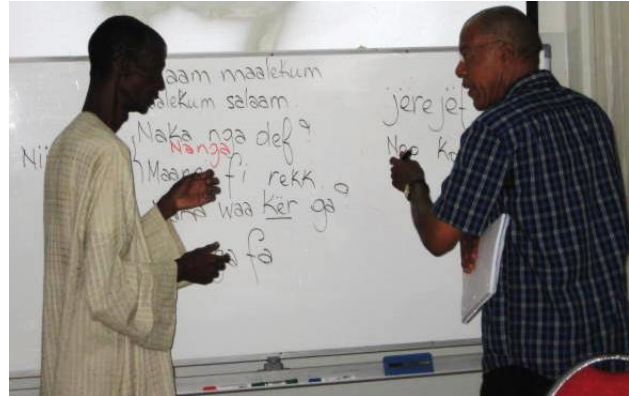 aam maalekum
aalekum salaam.
Naka nga def?
Nanga
Maangi fi rekk.
Naka waa kër ga?
fa
jërejëf
Noo ko